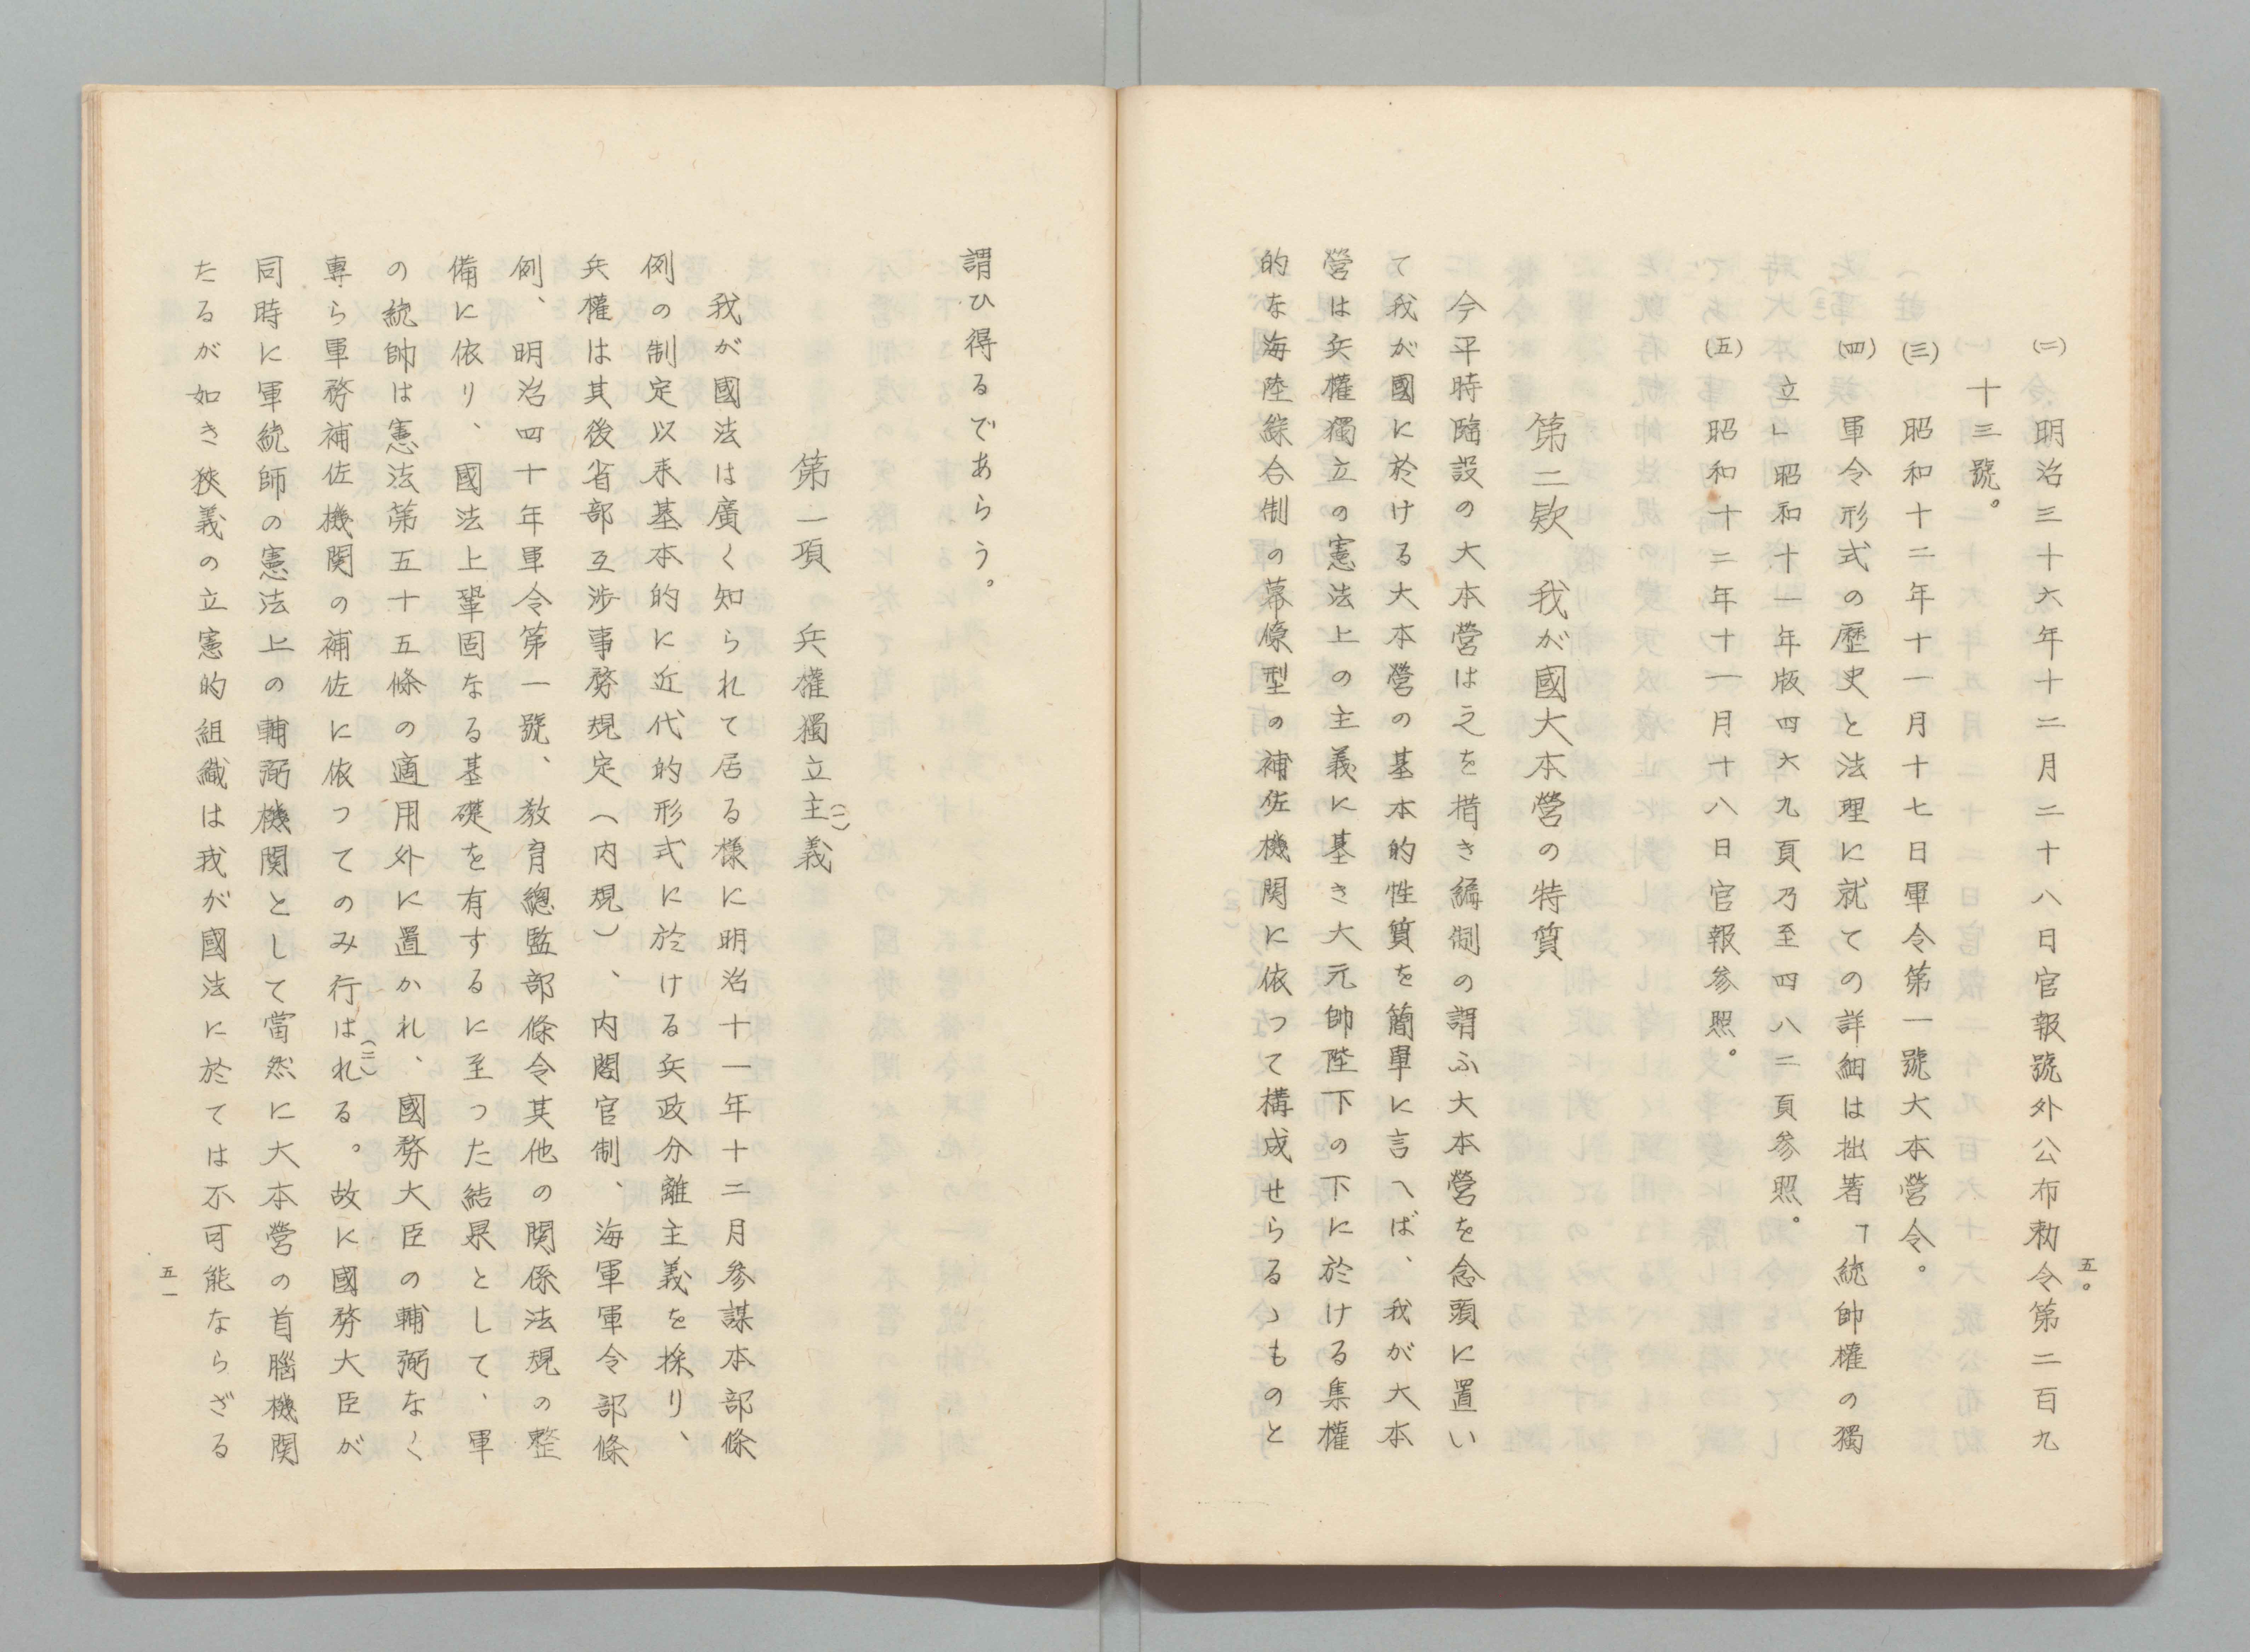 (二) 明治三十六年十二月二十八日官報號外公布勅令第二百九
十三號。
(三) 昭和十二年十一月十七日軍令第一號大本營令。
(四) 軍令形式の歷史と法理に就ての詳細は拙著「統帥權の獨
立」昭和十一年版四六九頁乃至四八二頁參照。
(五) 昭和十二年十一月十八日官報參照。
第二欵 我が國大本營の特質
今平時臨設の大本營は之を措き編制の謂ふ大本營を念頭に置い
て我が國に於ける大本營の基本的性質を簡單に言へば、我が大本
營は兵權獨立の憲法上の主義に基き大元帥陛下の下に於ける集權
的な海陸綜合制の幕僚型の補佐機関に依つて構成せらるゝものと
五〇
謂ひ得るであらう。
第一項 兵權獨立主義(一)
我が國法は廣く知られて居る樣に明治十一年十二月參謀本部條
例の制定以来基本的に近代的形式に於ける兵政分離主義を採り、
兵權は其後省部互渉事務規定(内規)、内閣官制、海軍軍令部條
例、明治四十年軍令第一號、教育總監部條令其他の関係法規の整
備に依り、國法上鞏固なる基礎を有するに至つた結果として、軍
の統帥は憲法第五十五條の適用外に置かれ、國務大臣の輔弼なく
專ら軍務補佐機関の補佐に依つてのみ行はれる(二)。故に國務大臣が
同時に軍統師の憲法上の輔弼機関として當然に大本營の首腦機関
たるが如き狹義の立憲的組織は我が國法に於ては不可能ならざる
五一